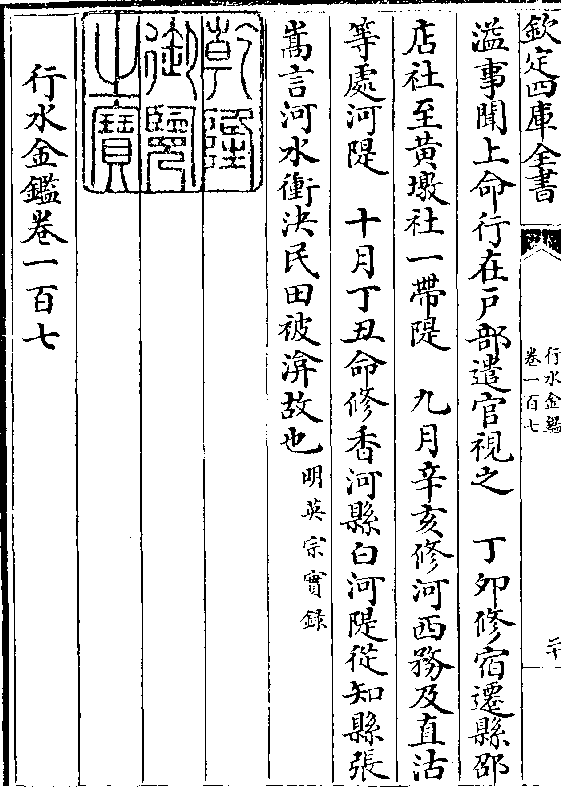 欽定四庫全書
行水金鑑
卷一百七
二十
溢事聞上命行在戸部遣官視之　丁卯修宿遷縣邵
店社至黄墩社一帶隄　九月辛亥修河西務及直沽
等處河隄　十月丁丑命修香河縣白河隄從知縣張
嵩言河水衝決民田被渰故也明英宗實録
乾隆御覽之寶
行水金鑑卷一百七